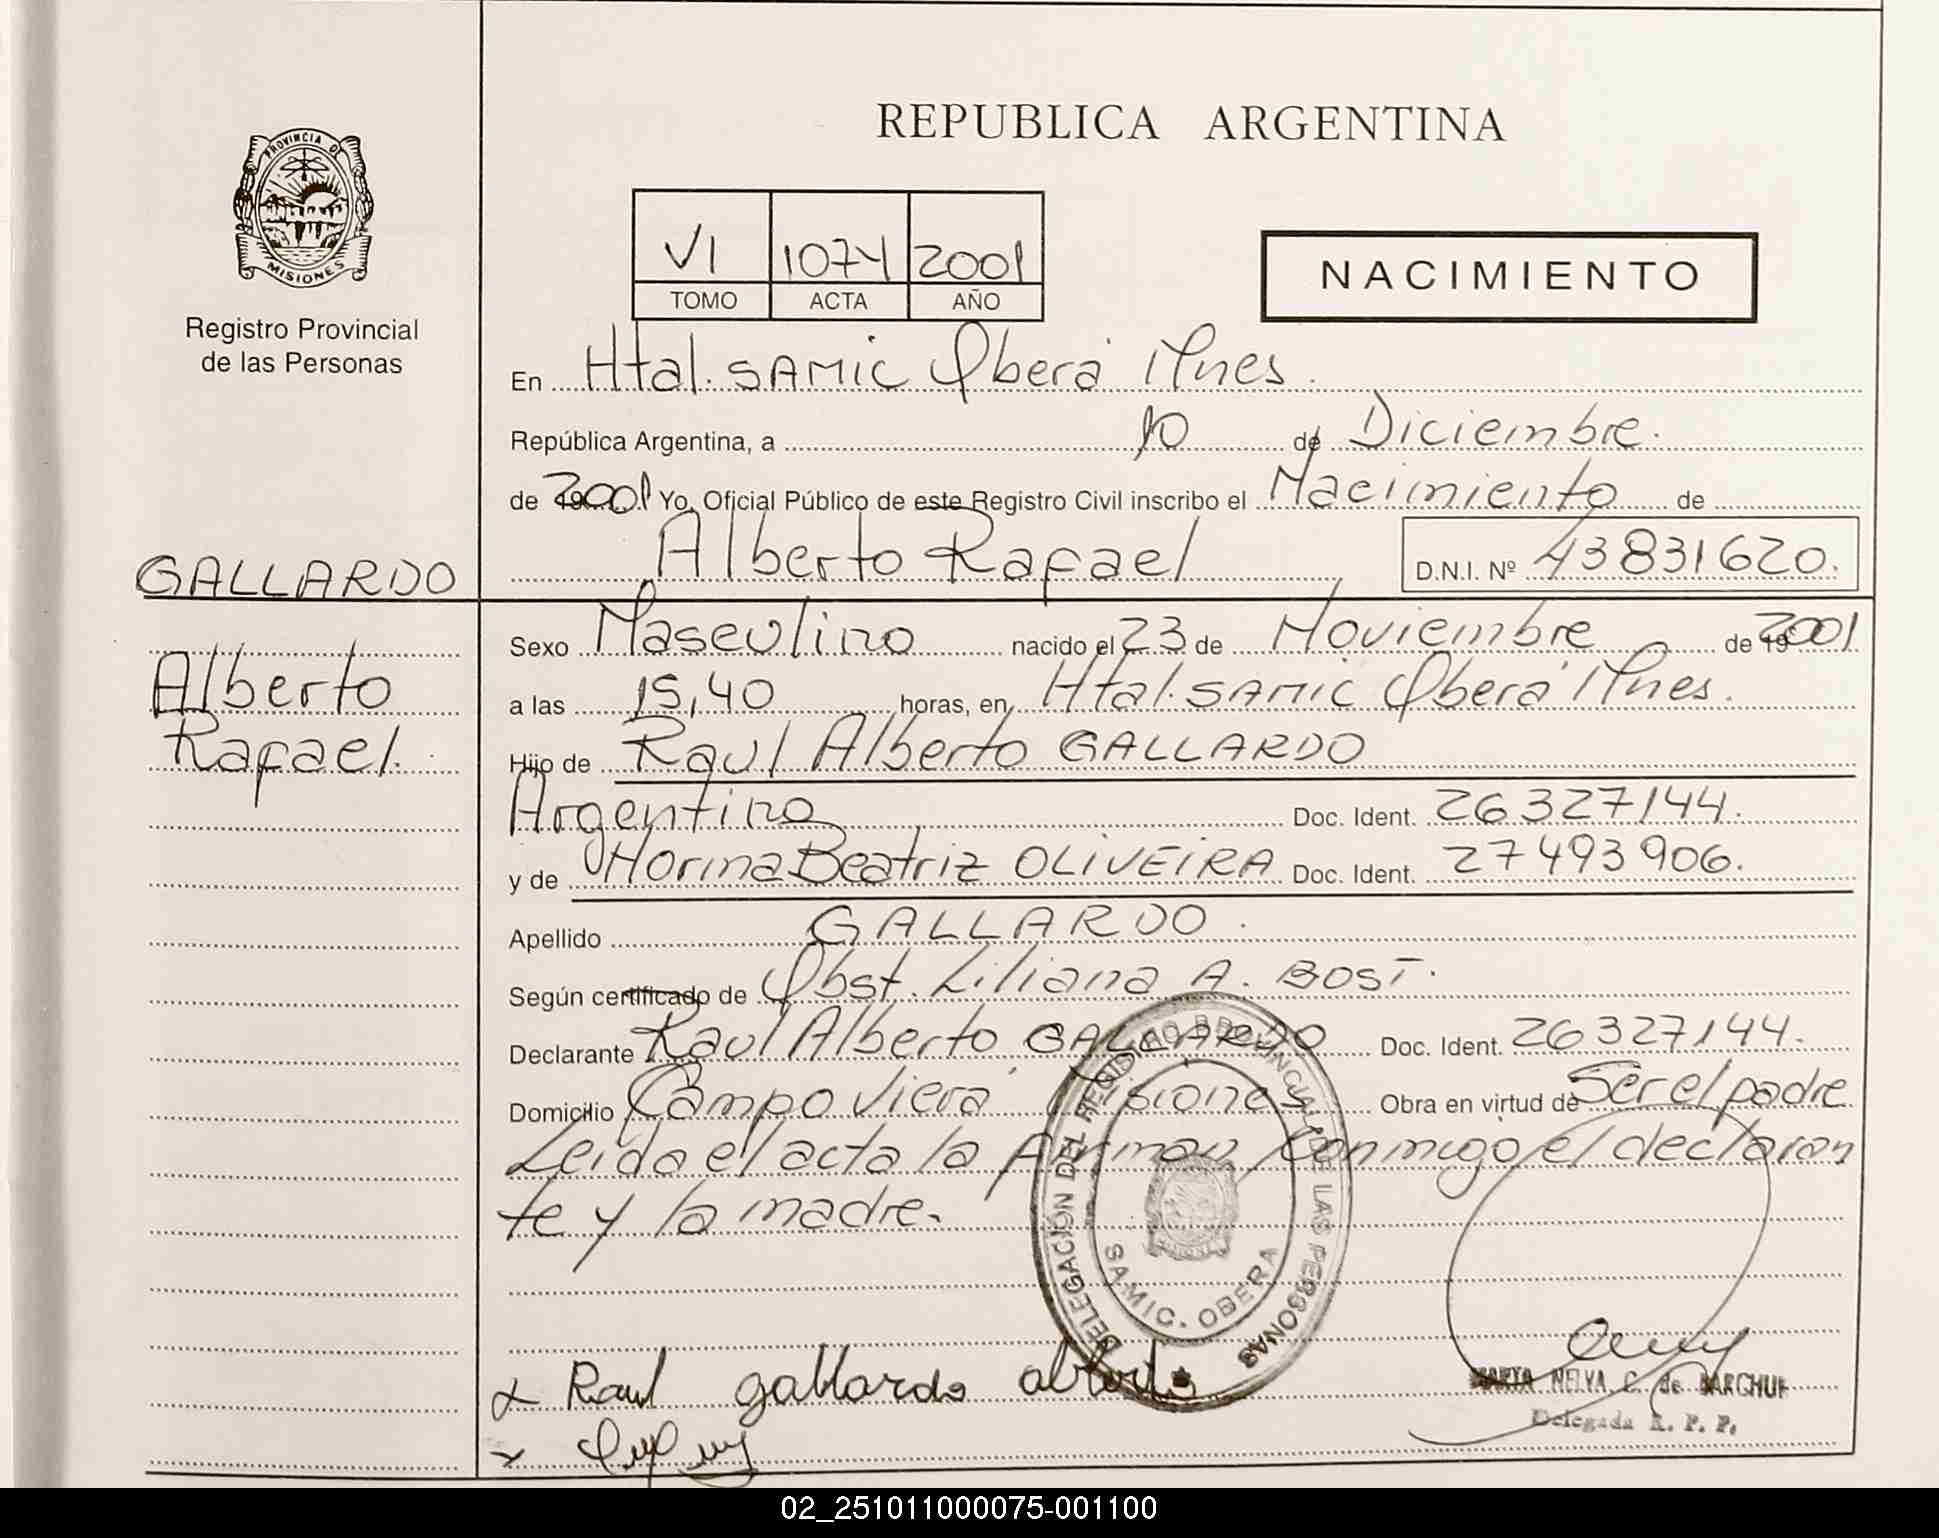 REPUBLICA ARGENTINA
PROVINCIA DE
MISIONES
Registro Provincial
de las Personas
VI 1074 2001
TOMO ACTA AÑO
NACIMIENTO
En Htal. SAMIC Oberá Mnes.
República Argentina, a 10 de Diciembre.
de 2001 Yo, Oficial Público de este Registro Civil inscribo el Nacimiento de
Alberto Rafael D.N.I. Nº 43831620.
GALLARDO
Alberto
Rafael.
Sexo Masculino nacido el 23 de Noviembre de 2001
a las 15,40 horas, en Htal. SAMIC Oberá Mnes.
Hijo de Raul Alberto GALLARDO
Argentino Doc. Ident. 26327144.
y de Norma Beatriz OLIVEIRA Doc. Ident. 27493906.
Apellido GALLARDO.
Según certificado de Obst. Liliana A. BOST.
Declarante Raul Alberto GALLARDO Doc. Ident. 26327144.
Domicilio Campo Viera Misiones Obra en virtud de Ser el padre
Leida el acta la firman conmigo el declaran
te y la madre.
DELEGACIÓN DEL REGISTRO PROVINCIAL DE LAS PERSONAS
SAMIC. OBERA
x Raul gallardo alberto
x
MARTA NELVA C. de
Delegada R. P. P.
02_251011000075-001100